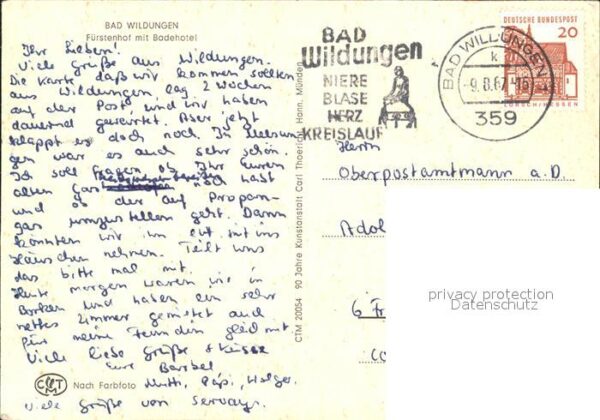 BAD WILDUNGEN
Fürstenhof mit Badehotel
Ihr Lieben!
Viele Grüße aus Wildungen.
Die Karte daß wir kommen sollten
aus Wildungen lag 2 Wochen
auf der Post und wir haben
dauernd gewartet. Aber jetzt
klappt es doch noch. In Melsun
gen war es auch sehr schön.
Ich soll fragen ob Ihr Euren
alten noch habt
und ob der auf Propan-
gas umzustellen geht. Dann
könnten wir ihn mit ins
Häuschen nehmen. Teilt uns
das bitte mal mit.
Heute morgen waren wir in
Borken und haben ein sehr
nettes Zimmer gemietet auch
für meine Freundin gleich mit
Viele liebe Grüße + Küsse
Eure Bärbel
Mutti, Papi, Holger
Viele Grüße von
CTM
Nach Farbfoto
CTM 20054 90 Jahre Kunstanstalt Carl Thoericht Hann. Münden
BAD
Wildungen
NIERE
BLASE
HERZ
KREISLAUF
BAD WILDUNGEN
k
-9.8.67-
359
DEUTSCHE BUNDESPOST
20
LORSCH/HESSEN
Herrn
Oberpostamtmann a.D.
Adol
6 F
privacy protection
Datenschutz